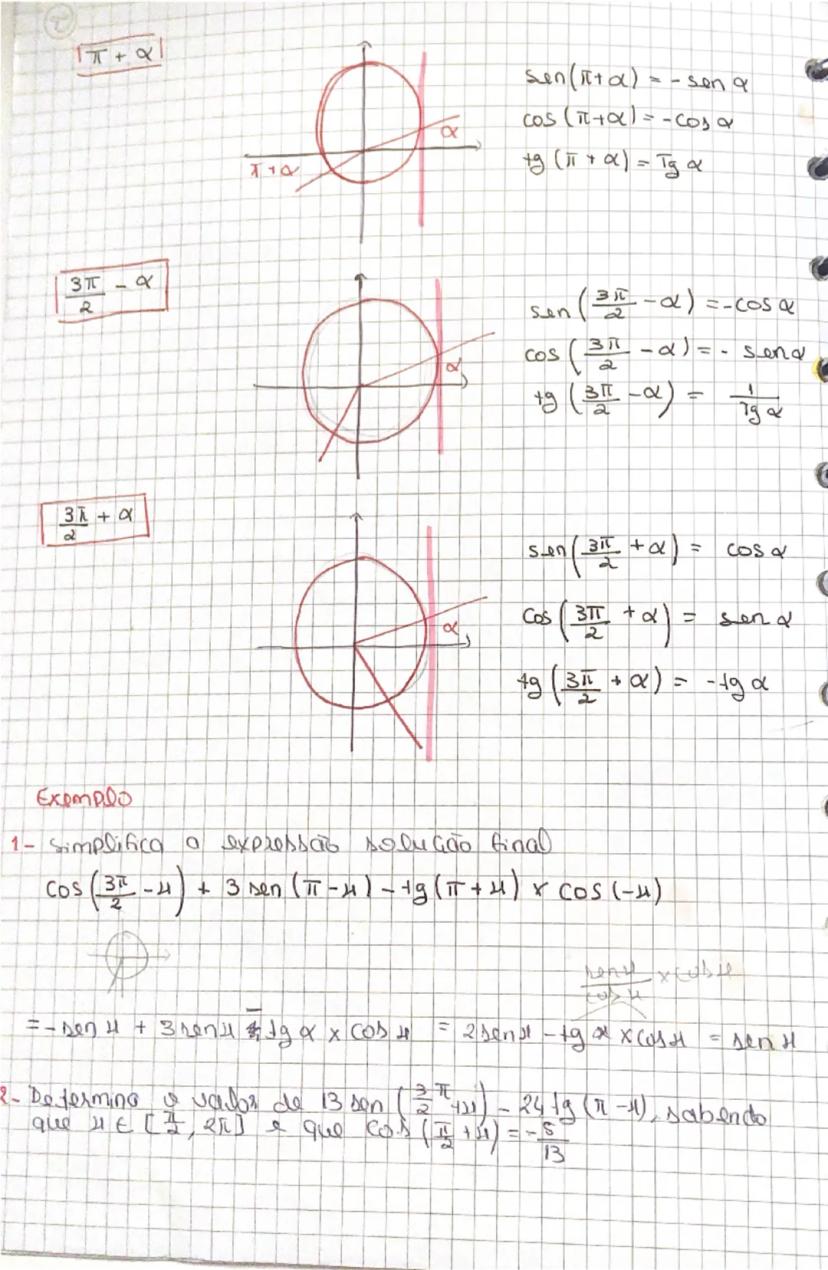 π + α
sen(π+α) = - sen α
cos(π+α) = -cos α
tg(π + α) = Tg α
α
π+α
3π/2 - α
sen(3π/2 - α) = -cos α
cos(3π/2 - α) = - sen α
tg(3π/2 - α) = 1/Tg α
α
3π/2 + α
sen(3π/2 + α) = cos α
cos(3π/2 + α) = sen α
tg(3π/2 + α) = -tg α
α
Exemplo
1- Simplifica a expressão solução final
cos(3π/2 - x) + 3 sen(π - x) - tg(π + x) × cos(-x)
sen x/cos x × cos x
= - sen x + 3 sen x - tg α × cos x = 2 sen x - tg x × cos x = sen x
2- Determina o valor de 13 sen(3π/2 + x) - 24 tg(π - x), sabendo
que x ∈ [π/2, 2π] e que cos(π/2 + x) = -5/13